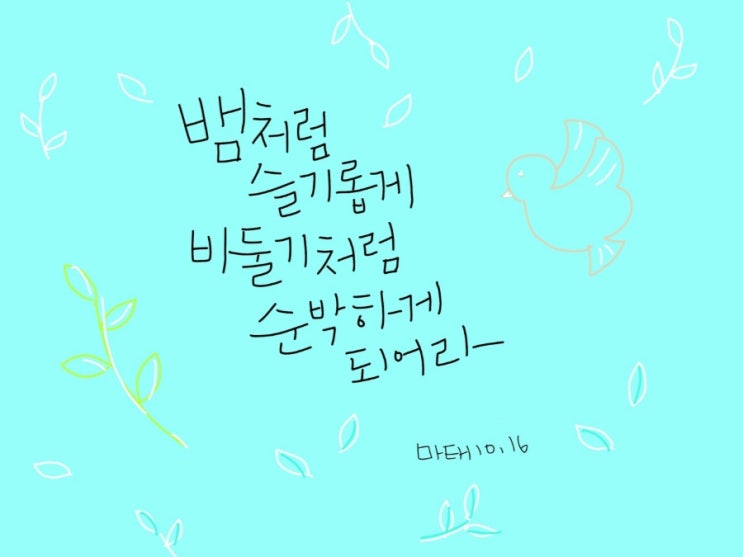 뱀처럼
슬기롭게
비둘기처럼
순박하게
되어라
마태10.16